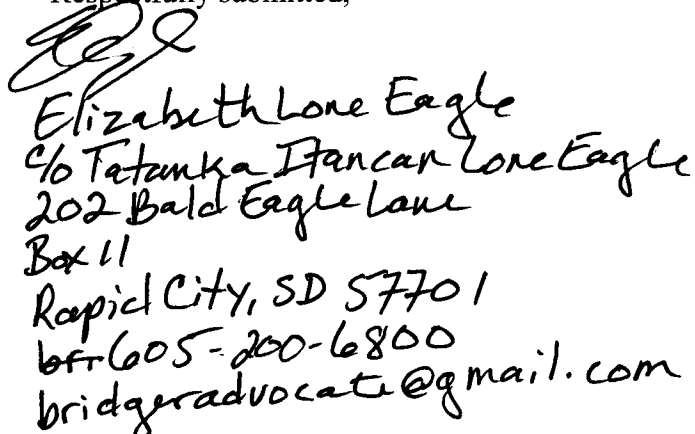 Respectfully submitted,
Elizabeth Lone Eagle
c/o Tatanka Itancan Lone Eagle
202 Bald Eagle Lane
Box 11
Rapid City, SD 57701
605-200-6800
bridgeradvocate@gmail.com